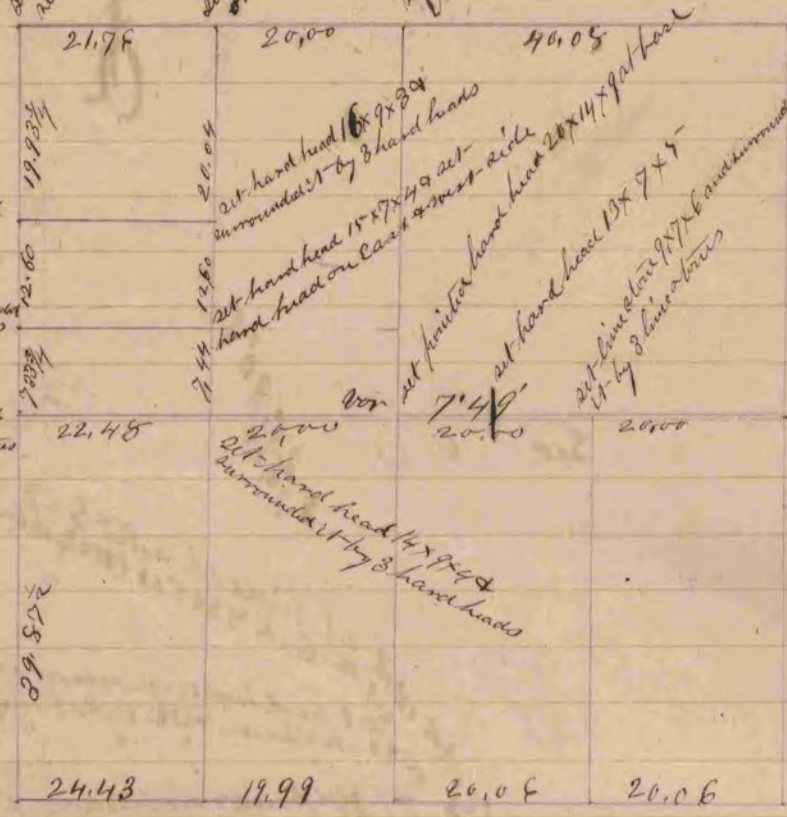 21.75 20,00 40.08
19.93 3/4
20.04
set hard head 16 x 9 x 3 &
surrounded it by 3 hard heads
12.60
12.60
set hard head 15 x 7 x 4 & set
hard head on East & west side
set pointed hard head 20 x 14 x 9 at base
set hard head 13 x 7 x 5
set lime stone 9 x 7 x 6 and surround
it by 3 lime stones
7.44
Von 7°49'
22.48 20,00 20.00 20,00
set hard head 14 x 9 x 4 &
surrounded it by 3 hard heads
39.87 1/2
24.43 19.99 20,06 20.06